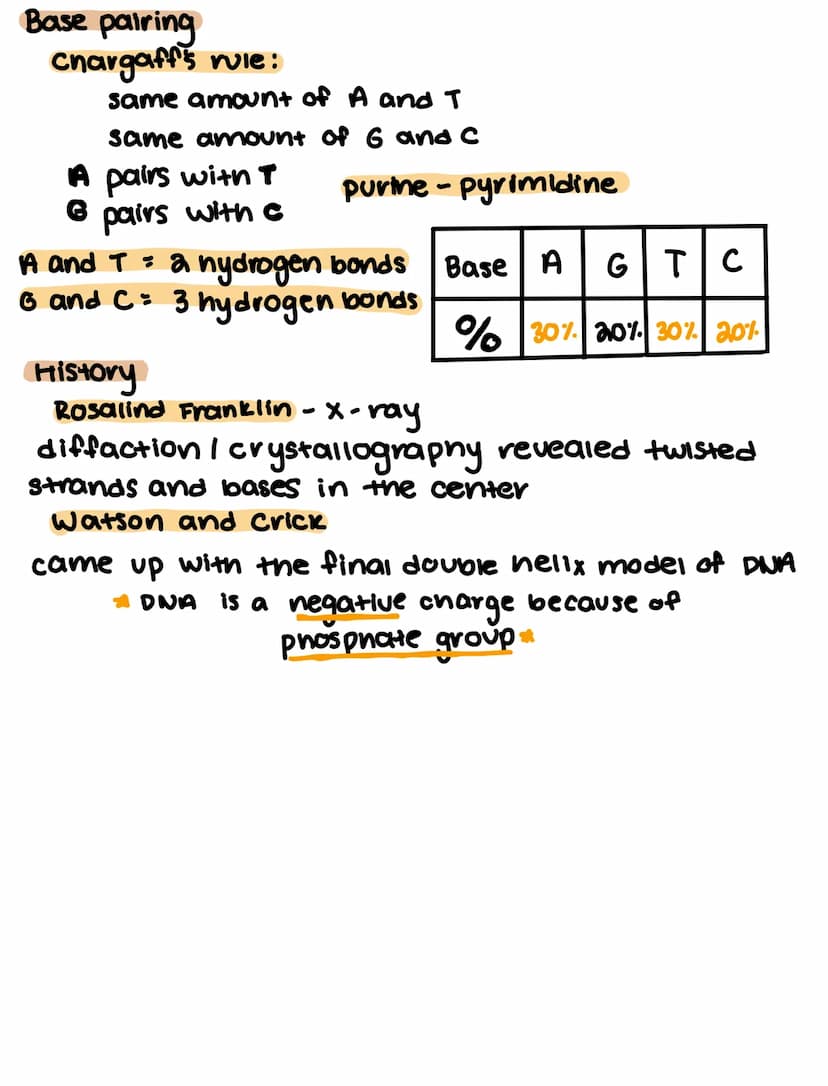 Base pairing
Chargaff's rule:
same amount of A and T
same amount of G and C
A pairs with T
G pairs with C
purine - pyrimidine
A and T = 2 hydrogen bonds
G and C = 3 hydrogen bonds
Base A G T C
% 30% 20% 30% 20%
History
Rosalind Franklin - x-ray
diffaction / crystallography revealed twisted
strands and bases in the center
Watson and Crick
came up with the final double helix model of DNA
* DNA is a negative charge because of
phosphate group *